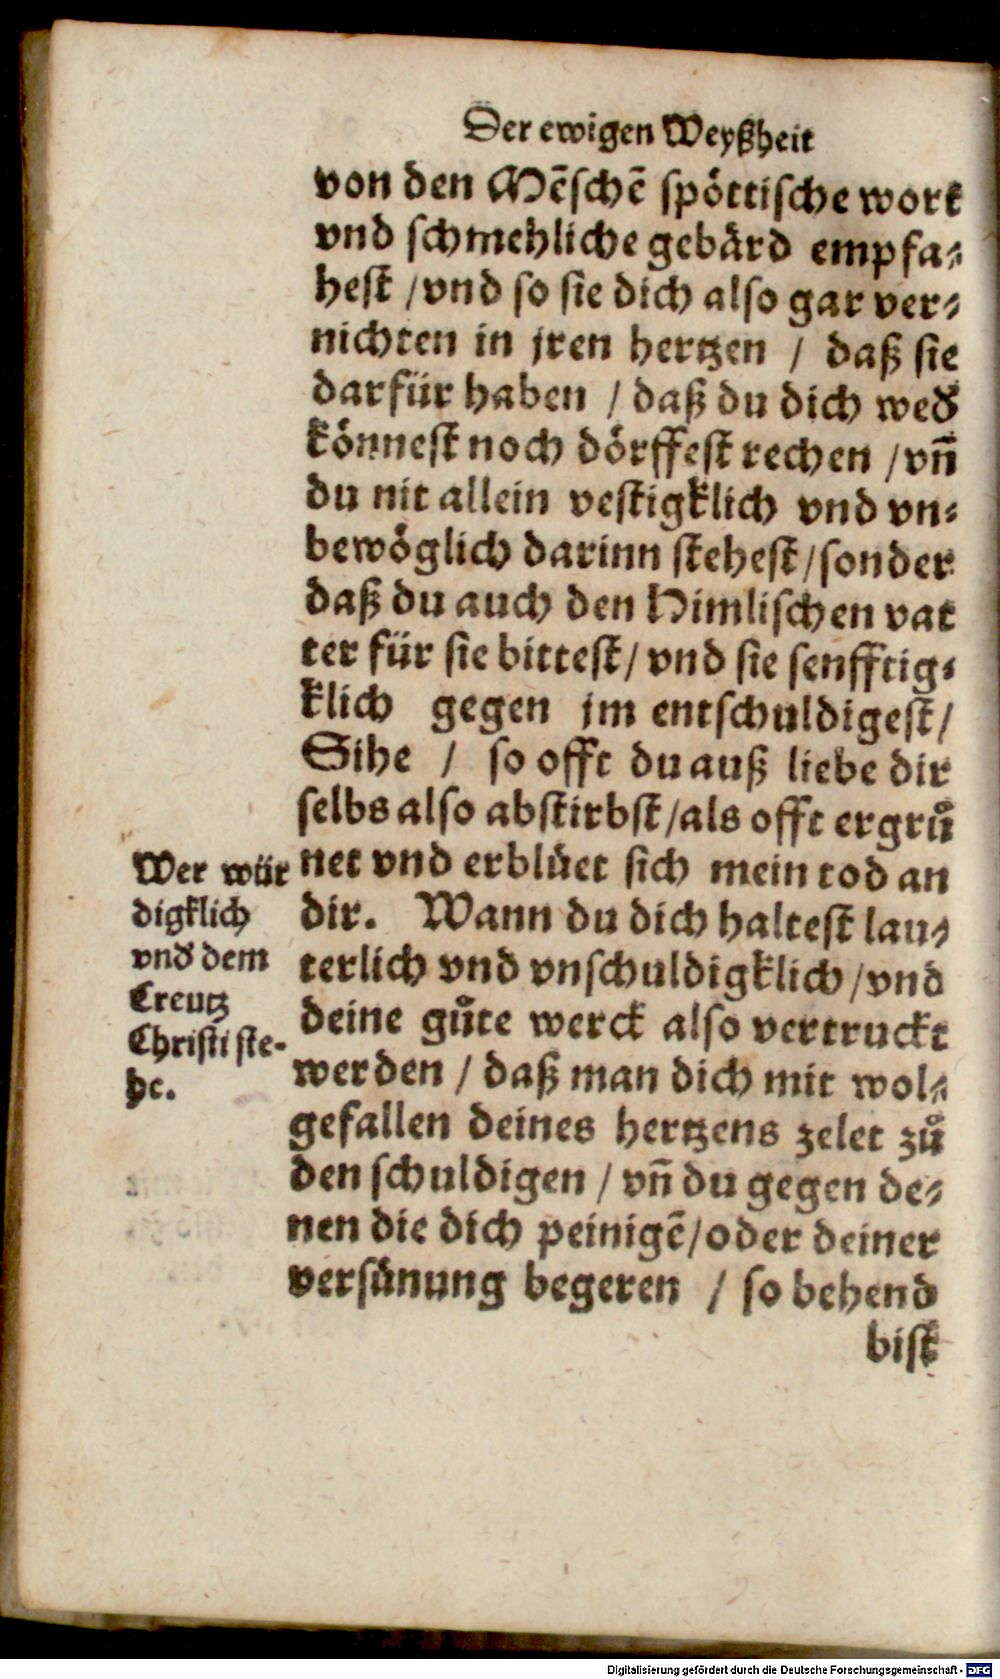 Der ewigen Weyßheit
von den Mẽschẽ spöttische wort
vnd schmehliche gebärd empfa-
hest / vnd so sie dich also gar ver-
nichten in jren hertzen / daß sie
darfür haben / daß du dich wed̕
könnest noch dörffest rechen / vñ
du nit allein vestigklich vnd vn-
bewöglich darinn stehest / sonder
daß du auch den Himlischen vat
ter für sie bittest / vnd sie senfftig-
klich gegen jm entschuldigest /
Sihe / so offt du auß liebe dir
selbs also abstirbst / als offt ergrů
net vnd erblüet sich mein tod an
dir. Wann du dich haltest lau-
terlich vnd vnschuldigklich / vnd
deine gůte werck also vertruckt
werden / daß man dich mit wol-
gefallen deines hertzens zelet zů
den schuldigen / vñ du gegen de-
nen die dich peinigẽ / oder deiner
versünung begeren / so behend
bist
Wer wür
digklich
vnd̕ dem
Creutz
Christi ste-
he.
Digitalisierung gefördert durch die Deutsche Forschungsgemeinschaft - DFG